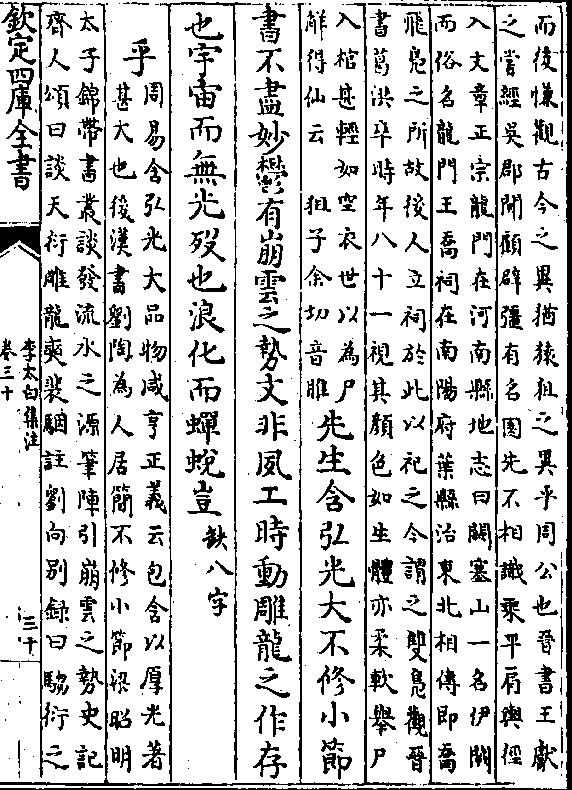 而後慊觀古今之異猶猿狙之異乎周公也晉書王獻
之嘗經吳郡聞顧辟彊有名園先不相識乘平肩輿徑
入文章正宗龍門在河南縣地志曰闕塞山一名伊闕
而俗名龍門王喬祠在南陽府葉縣治東北相傳即喬
飛鳬之所故後人立祠於此以祀之今謂之雙鳬觀晉
書葛洪卒時年八十一視其顔色如生體亦柔軟舉尸
入棺甚輕如空衣世以為尸
解得仙云 狙子余切音雎
先生含弘光大不修小節
書不盡妙鬱有崩雲之勢文非夙工時動雕龍之作存
也宇宙而無光歿也浪化而蟬蛻豈
缺八字
乎
周易含弘光大品物咸亨正義云包含以厚光著
甚大也後漢書劉陶為人居簡不修小節梁昭明
太子錦帶書叢談發流水之源筆陣引崩雲之勢史記
齊人頌曰談天衍雕龍奭裴駰註劉向別録曰騶衍之
欽定四庫全書
李太白集注
卷三十
三十